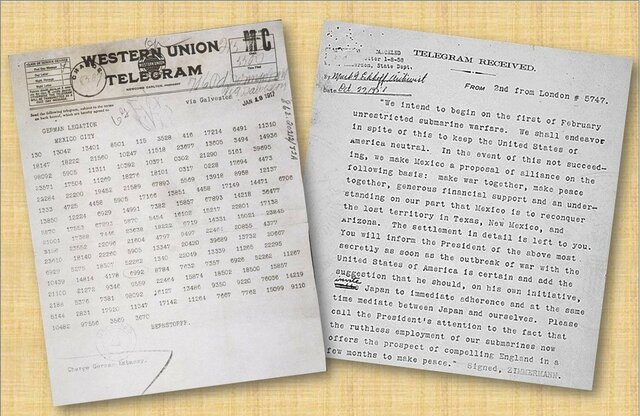 WESTERN UNION
TELEGRAM
NEWCOMB CARLTON, PRESIDENT
via Galveston
JAN 19 1917
GERMAN LEGATION
MEXICO CITY
130 13042 13401 8501 115 3528 416 17214 6491 11310
18147 18222 21560 10247 11518 23677 13605 3494 14936
98092 5905 11311 10392 10371 0302 21290 5161 39695
23571 17504 11269 18276 18101 0317 0228 17694 4473
22284 22200 19452 21589 67893 5569 13918 8958 12137
1333 4725 4458 5905 17166 13851 4458 17149 14471 6706
13850 12224 6929 14991 7382 15857 67893 14218 36477
5870 17553 67893 5870 5454 16102 15217 22801 17138
21001 17388 7446 23638 18222 6719 14331 15021 23845
3156 23552 22096 21604 4797 9497 22464 20855 4377
23610 18140 22260 5905 13347 20420 39689 13732 20667
6929 5275 18507 52262 1340 22049 13339 11265 22295
10439 14814 4178 6992 8784 7632 7357 6926 52262 11267
21100 21272 9346 9559 22464 15874 18502 18500 15857
2188 5376 7381 98092 16127 13486 9350 9220 76036 14219
5144 2831 17920 11347 17142 11264 7667 7762 15099 9110
10482 97556 3569 3670
BERNSTORFF.
Charge German Embassy.
TELEGRAM RECEIVED.
1-8-58
State Dept.
By
FROM 2nd from London # 5747.
"We intend to begin on the first of February
unrestricted submarine warfare. We shall endeavor
in spite of this to keep the United States of
america neutral. In the event of this not succeed-
ing, we make Mexico a proposal of alliance on the
following basis: make war together, make peace
together, generous financial support and an under-
standing on our part that Mexico is to reconquer
the lost territory in Texas, New Mexico, and
arizona. The settlement in detail is left to you.
You will inform the President of the above most
secretly as soon as the outbreak of war with the
United States of America is certain and add the
suggestion that he should, on his own initiative,
invite Japan to immediate adherence and at the same
time mediate between Japan and ourselves. Please
call the President's attention to the fact that
the ruthless employment of our submarines now
offers the prospect of compelling England in a
few months to make peace." Signed, ZIMMERMANN.